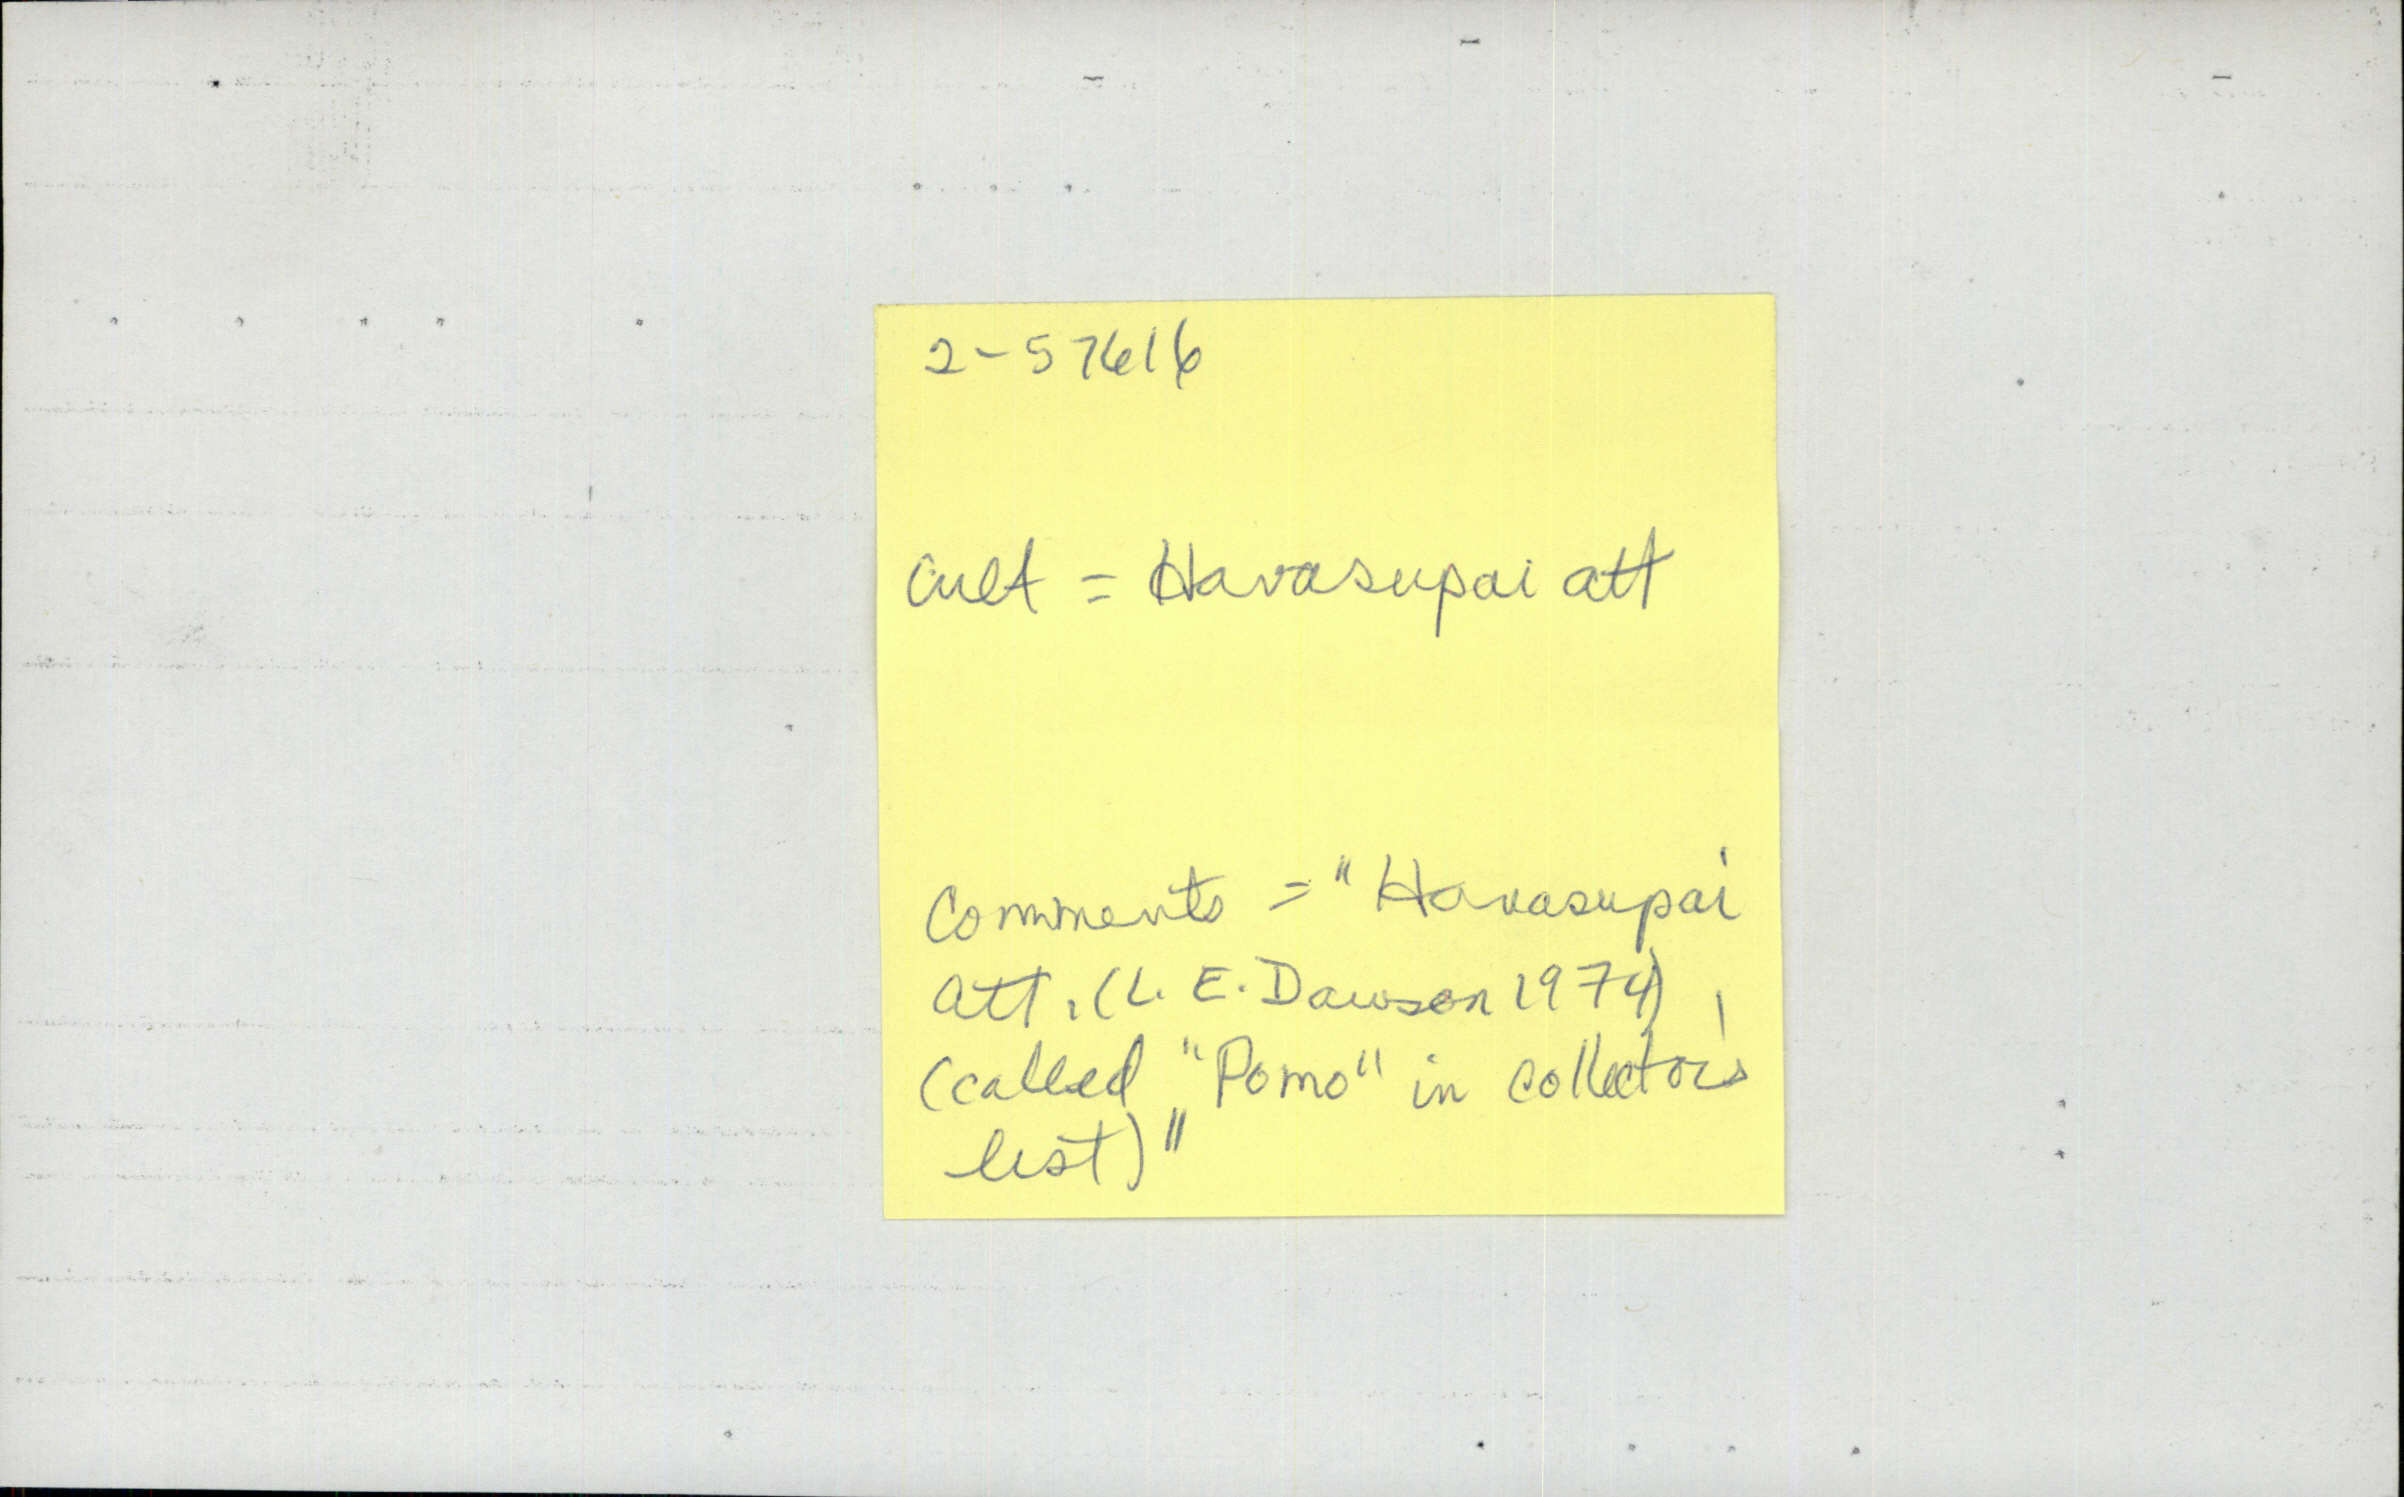 2-57616
Cult = Havasupai att
Comments = "Havasupai
att. (L. E. Dawson 1974)
(called "Pomo" in collector's
list)"